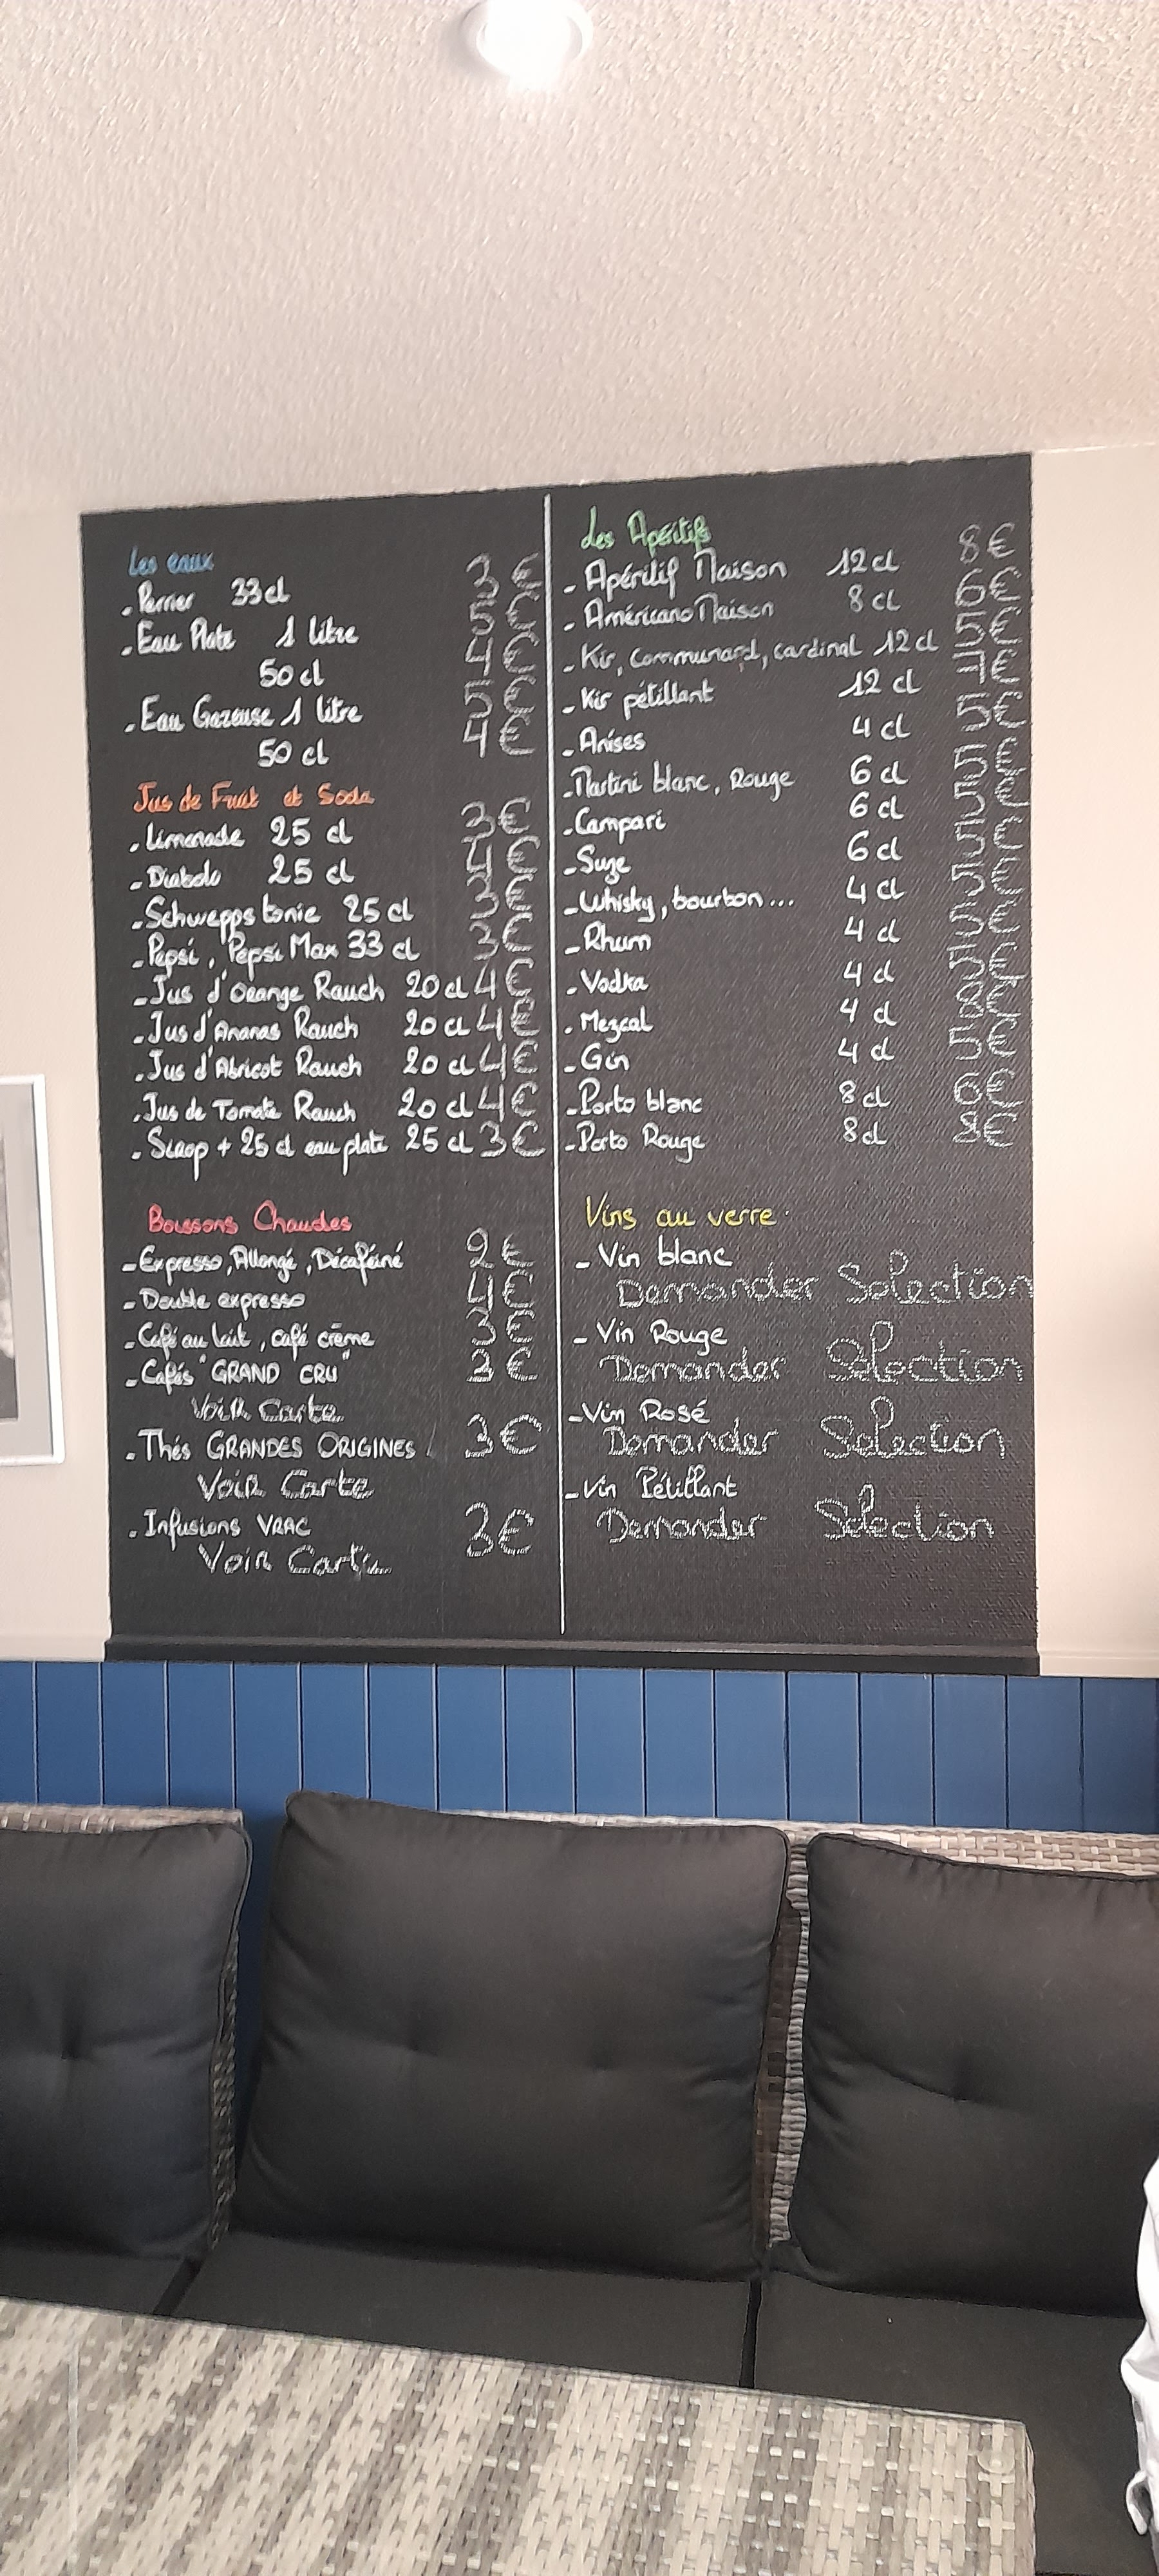 Les eaux
- Perrier 33cl 3€
- Eau Plate 1 litre 5€
50 cl 4€
- Eau Gazeuse 1 litre 5€
50 cl 4€
Jus de Fruit et Soda
- Limonade 25 cl 3€
- Diabolo 25 cl 4€
- Schwepps tonic 25 cl 3€
- Pepsi, Pepsi Max 33 cl 3€
- Jus d'Orange Rauch 20 cl 4€
- Jus d'Ananas Rauch 20 cl 4€
- Jus d'Abricot Rauch 20 cl 4€
- Jus de Tomate Rauch 20 cl 4€
- Sirop + 25 cl eau plate 25 cl 3€
Boissons Chaudes
- Expresso, Allongé, Décaféiné 2€
- Double expresso 4€
- Café au lait, café crème 3€
- Cafés "GRAND CRU" 3€
VOIR Carte
- Thés GRANDES ORIGINES 3€
VOIR Carte
- Infusions VRAC 3€
VOIR Carte
Les Apéritifs
- Apéritif Maison 12 cl 8€
- Américano Maison 8 cl 6€
- Kir, communard, cardinal 12 cl 5€
- Kir pétillant 12 cl 7€
- Anises 4 cl 5€
- Martini blanc, Rouge 6 cl 5€
- Campari 6 cl 5€
- Suze 6 cl 5€
- Whisky, bourbon... 4 cl 5€
- Rhum 4 cl 5€
- Vodka 4 cl 5€
- Mezcal 4 cl 8€
- Gin 4 cl 5€
- Porto blanc 8 cl 6€
- Porto Rouge 8 cl
Vins au verre
- Vin blanc
Demander Sélection
- Vin Rouge
Demander Sélection
- Vin Rosé
Demander Sélection
- Vin Pétillant
Demander Sélection